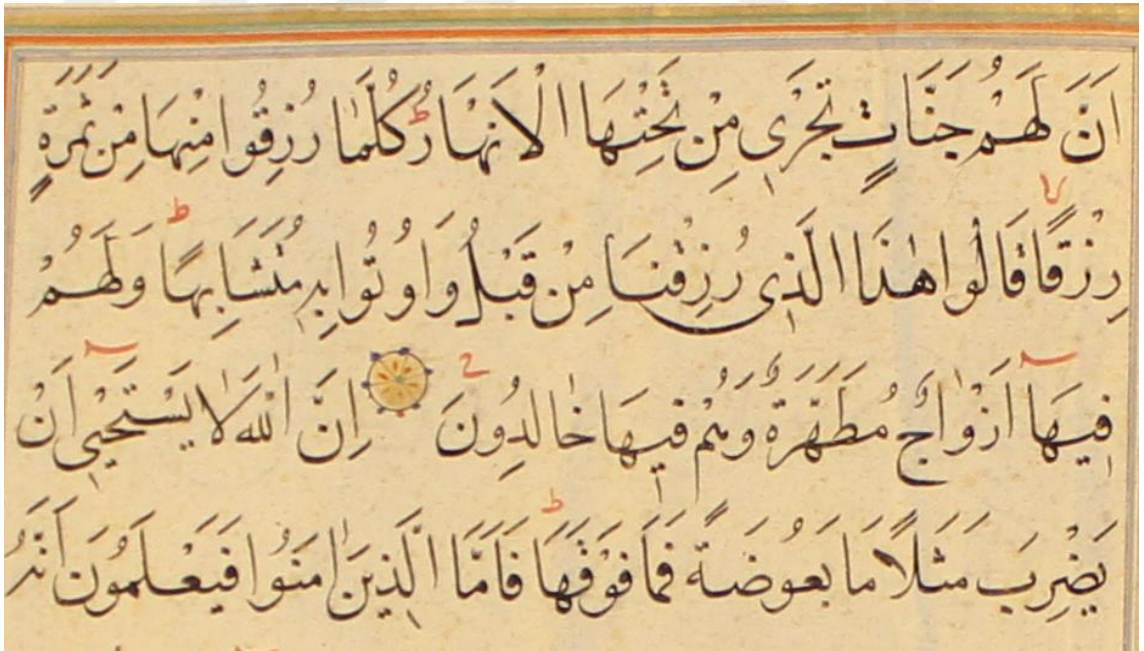 اَنَّ لَهُمْ جَنَّاتٍ تَجْرٖى مِنْ تَحْتِهَا الْاَنْهَارُ ط كُلَّمَا رُزِقُوا مِنْهَا مِنْ ثَمَرَةٍ
رِزْقًا لا قَالُوا هٰذَا الَّذٖى رُزِقْنَا مِنْ قَبْلُ وَاُوتُوا بِهٖ مُتَشَابِهًا ط وَلَهُمْ
فٖيهَا اَزْوَاجٌ مُطَهَّرَةٌ وَهُمْ فٖيهَا خَالِدُونَ اِنَّ اللّٰهَ لَا يَسْتَحْيٖ اَنْ
يَضْرِبَ مَثَلًا مَا بَعُوضَةً فَمَا فَوْقَهَا ط فَاَمَّا الَّذٖينَ اٰمَنُوا فَيَعْلَمُونَ اَنَّهُ